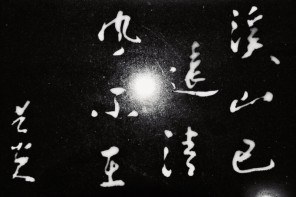 溪山已
遠清
風不至